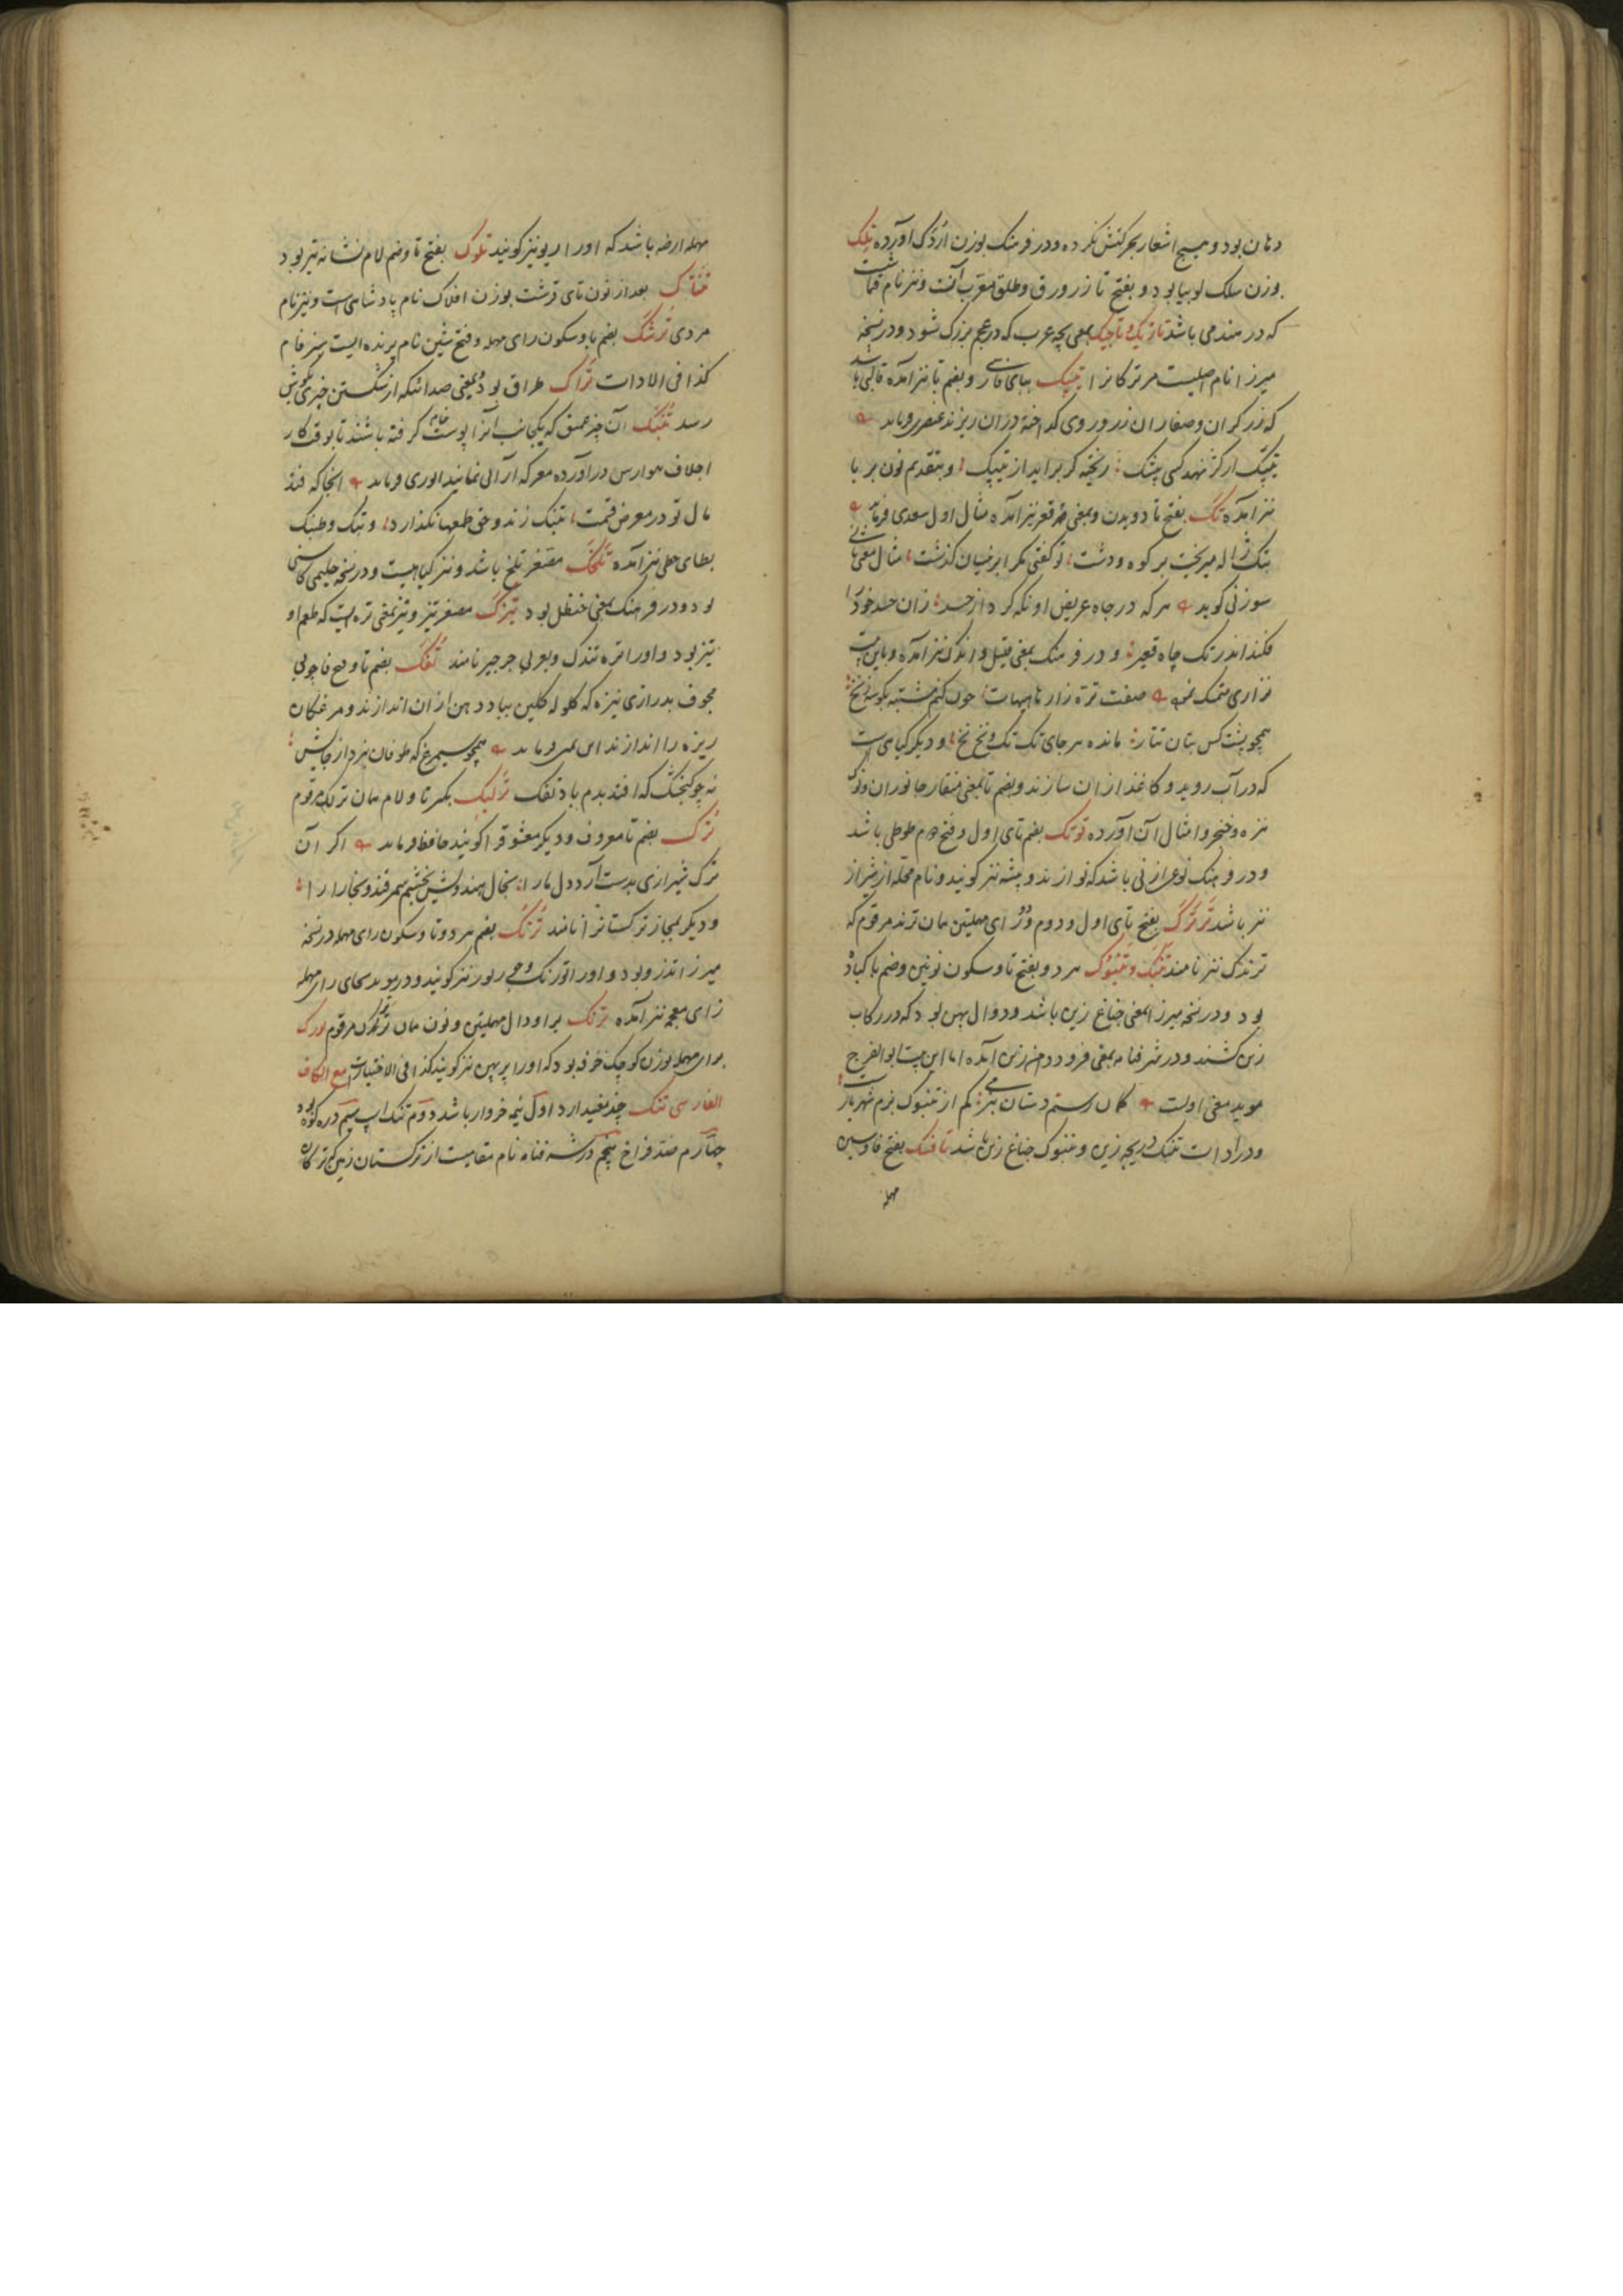 دهان بود و هیچ اشعار بحرکتش نکرده و در فرهنگ بوزن اردک آورده تلک
بوزن سلک لوبیا بود و بفتح تا زر ورق و طلق معرب آنست و نیز نام قماشیست
که در هند می باشد تازیک و تاجیک بمعنی بچه عرب که در عجم بزرگ شود و در نسخه
میرزا نام اصلیست مر ترکانرا تپبک ببای فارسی و بضم با نیز آمده قالبی باشد
که زرگران و صفاران زر و روی گداخته در آن ریزند عنصری فرماید
تپبک ار کژ نهد کسی بیشک ریخته کژ بر آید از تپبک و بتقدیم نون بر با
نیز آمده تک بفتح تا دویدن و بمعنی قعر نیز آمده مثال اول سعدی فرماید
بتک ژاله میریخت بر کوه و دشت تو گفتی مگر ابر نیسان گذشت مثال معنی ثانی
سوزنی گوید هر که در جاه عریض او نگه کرد از حسد زان حسد خود را
فکند اندر تک چاه قعیر و در فرهنگ بمعنی قلیل و اندک نیز آمده و باین بیت
نزاری متمسک شده صفت تره زار ها هیهات چون کنم مشتبه بکوسه زنخ
همچو پشت کس بتان تتار مانده هر جای تک تک و نخ نخ و دیگر گیاهی است
که در آب روید و کاغذ از آن سازند و بضم تا بمعنی منقار جانوران و نوک
نیزه و خنجر و امثال آن آورده توتک بضم تای اول و فتح دوم طوطی باشد
و در فرهنگ نوعی از نی باشد که نوازند و پیشه نیز گویند و نام محله از شیراز
نیز باشد ترترک بفتح تای اول و دوم و دو رای مهملتین همان ترند مرقوم که
ترندک نیز نامند تنبک و تنبوک هر دو بفتح تا و سکون نونین و ضم با کباده
بود و در نسخه میرزا بمعنی جناغ زین باشد و دوال پهن بود که در رکاب
زین کشند و در شرفنامه بمعنی فرود دامن زین آمده اما این بیت ابوالفرج
موید معنی اولست کمان رستم دستان کم از تنبوک بزم شهریار
و در ادات تنبک دریچه زین و تنبوک جناغ زین باشد تافشک بفتح فا و سین
مهمله
مهمله ارضه باشد که او را ریونیز گویند تلوک بفتح تا و ضم لام نشانه تیر بود
تناک بعد از نون تای قرشت بوزن افلاک نام پادشاهی است و نیز نام
مردی ترشک بضم با و سکون رای مهمله و فتح شین نام پرنده ایست سبز فام
کذا فی الادات تراک طراق بود و بمعنی صدائیکه از شکستن چیزی بگوش
رسد تنبک آن چیز عمیق که یکجانب آنرا پوست خام گرفته باشند تا بوقت کار
اجلاف هوارس در آورده معرکه آرائی نمایند انوری فرماید آنجا که فتد
مال تو در معرض قسمت تنبک زند و حق طمعها نگذارد و تنبک و طنبک
بطای حطی نیز آمده تلخک مصغر تلخ باشد و نیز گیاهیست و در نسخه حلیمی کاسنی
بود و در فرهنگ بمعنی حنظل بود تیزک مصغر تیز و نیز بمعنی تره ایست که طعم او
تیز بود و او را تره تندک و بعربی جرجیر نامند تفک بضم تا و فتح فا چوبی
مجوف بدرازی نیزه که گلوله گلین بباد دهن از آن اندازند و مرغکان
ریزه را اندازند ابن یمین فرماید همچو سیمرغ که طوفان نبرد از جایش
نه چو گنجشک که افتد بدم باد تفک ترلیک بکسر تا و لام همان ترلک مرقوم
ترک بضم تا معروف و دیگر معشوقرا گویند حافظ فرماید اگر آن
ترک شیرازی بدست آرد دل ما را بخال هندویش بخشم سمرقند و بخارا را
و دیگر بمجاز ترکستانرا نامند ترنگ بضم هر دو تا و سکون رای مهمله در نسخه
میرزا تذرو بود و او را تورنگ و جی ریور نیز گویند و در موید بجای رای مهمله
زای معجمه نیز آمده ترنک برا و دال مهملتین و نون همان مرقوم تورک
برای مهمله بوزن کوچک خرفه بود که او را پرپهن نیز گویند کذا فی الاختیارات مع الکاف
الفارسی تنگ چند معنی دارد اول نیمه خروار باشد دوم تنگ اسپ سیم دره کوه بود
چهارم ضد فراخ پنجم در شرفنامه نام مقامیست از ترکستان زمین که ترکان